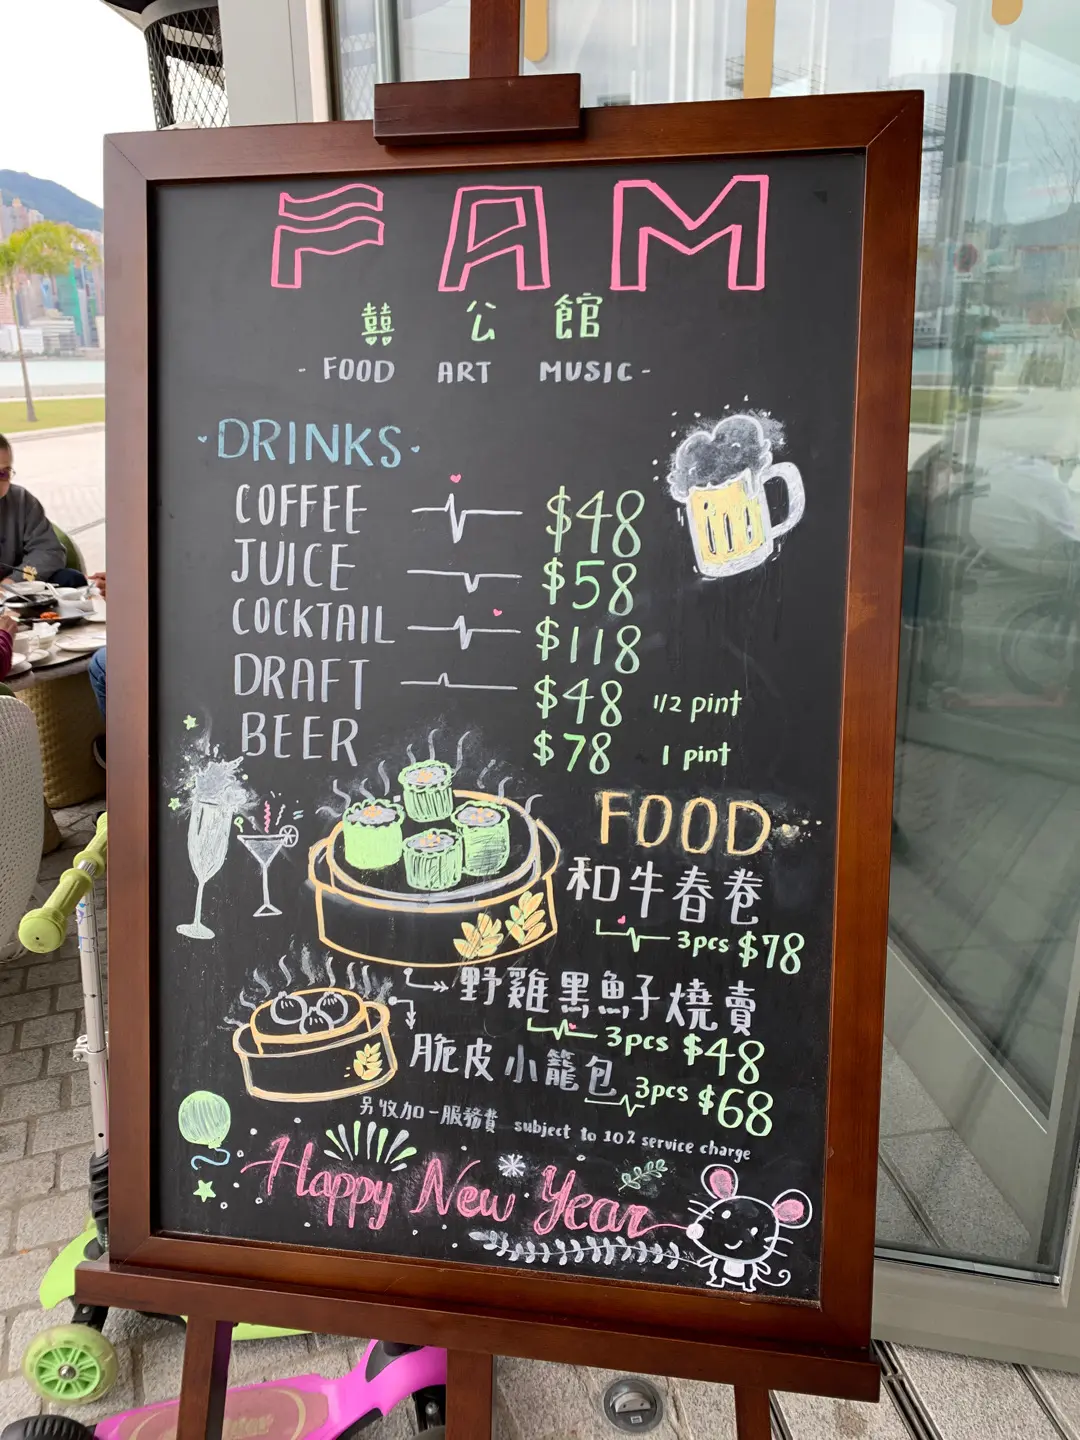 FAM
囍公館
- FOOD ART MUSIC -
DRINKS
COFFEE $48
JUICE $58
COCKTAIL $118
DRAFT $48 1/2 pint
BEER $78 1 pint
FOOD
和牛春卷
3pcs $78
野雞黑魚子燒賣
3pcs $48
脆皮小籠包 3pcs $68
另收加一服務費 subject to 10% service charge
Happy New Year